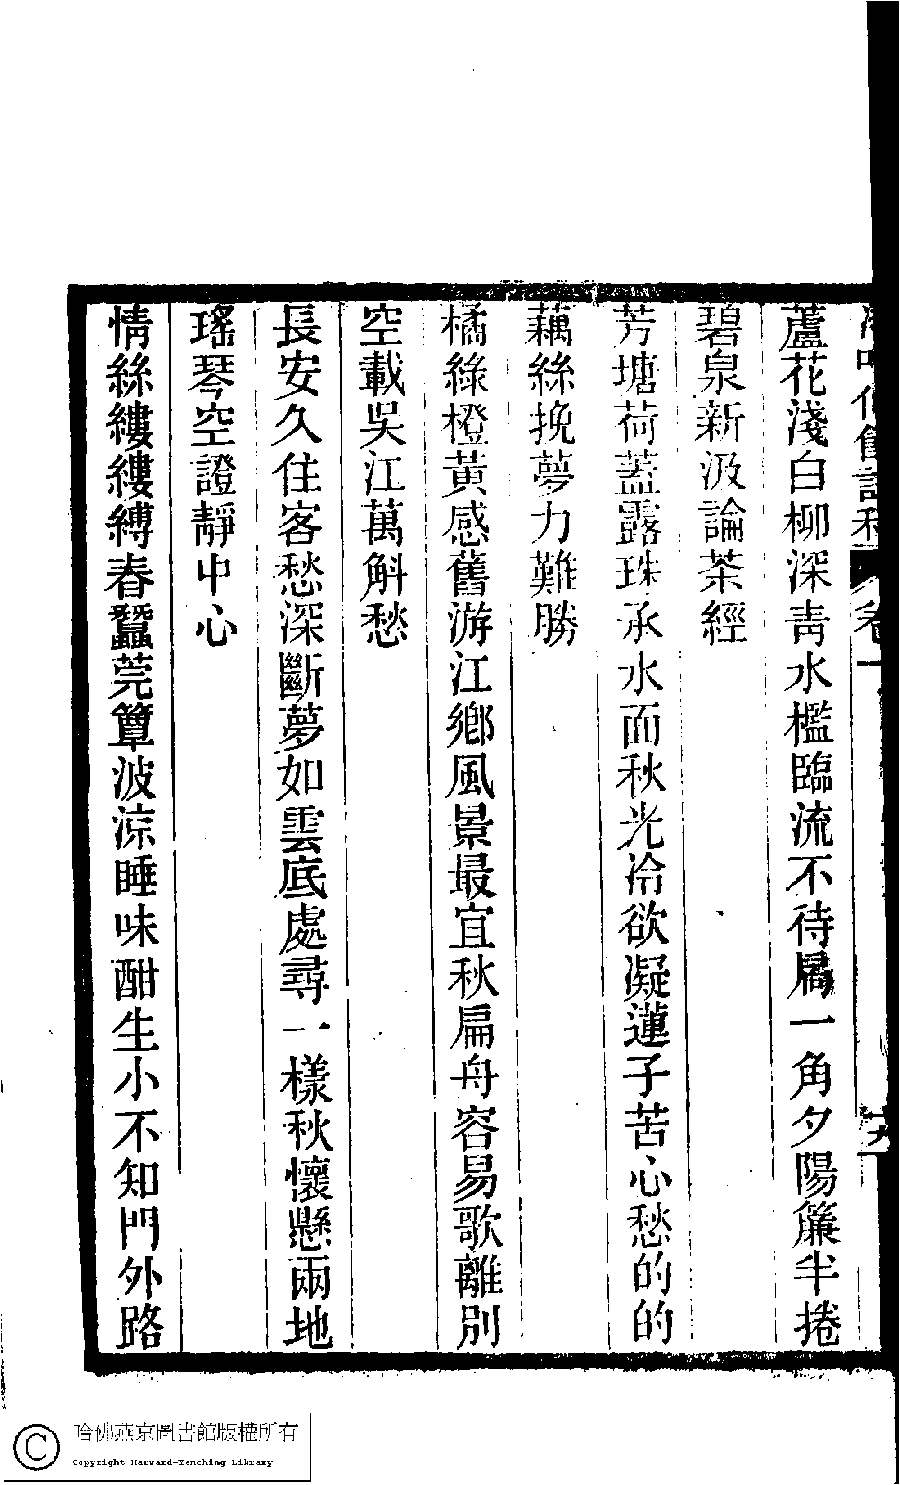 蘆花淺白柳深青水檻臨流不待扄一角夕陽簾半捲
碧泉新汲論茶經
芳塘荷蓋露珠承水面秋光冷欲凝蓮子苦心愁的的
藕絲挽夢力難勝
橘綠橙黃感舊游江鄉風景最宜秋扁舟容易歌離別
空載吳江萬斛愁
長安久住客愁深斷夢如雲底處尋一樣秋懷懸兩地
瑤琴空證靜中心
情絲縷縷縛春蠶莞簟波涼睡味酣生小不知門外路
哈佛燕京圖書館版權所有
Copyright Harvard-Yenching Library